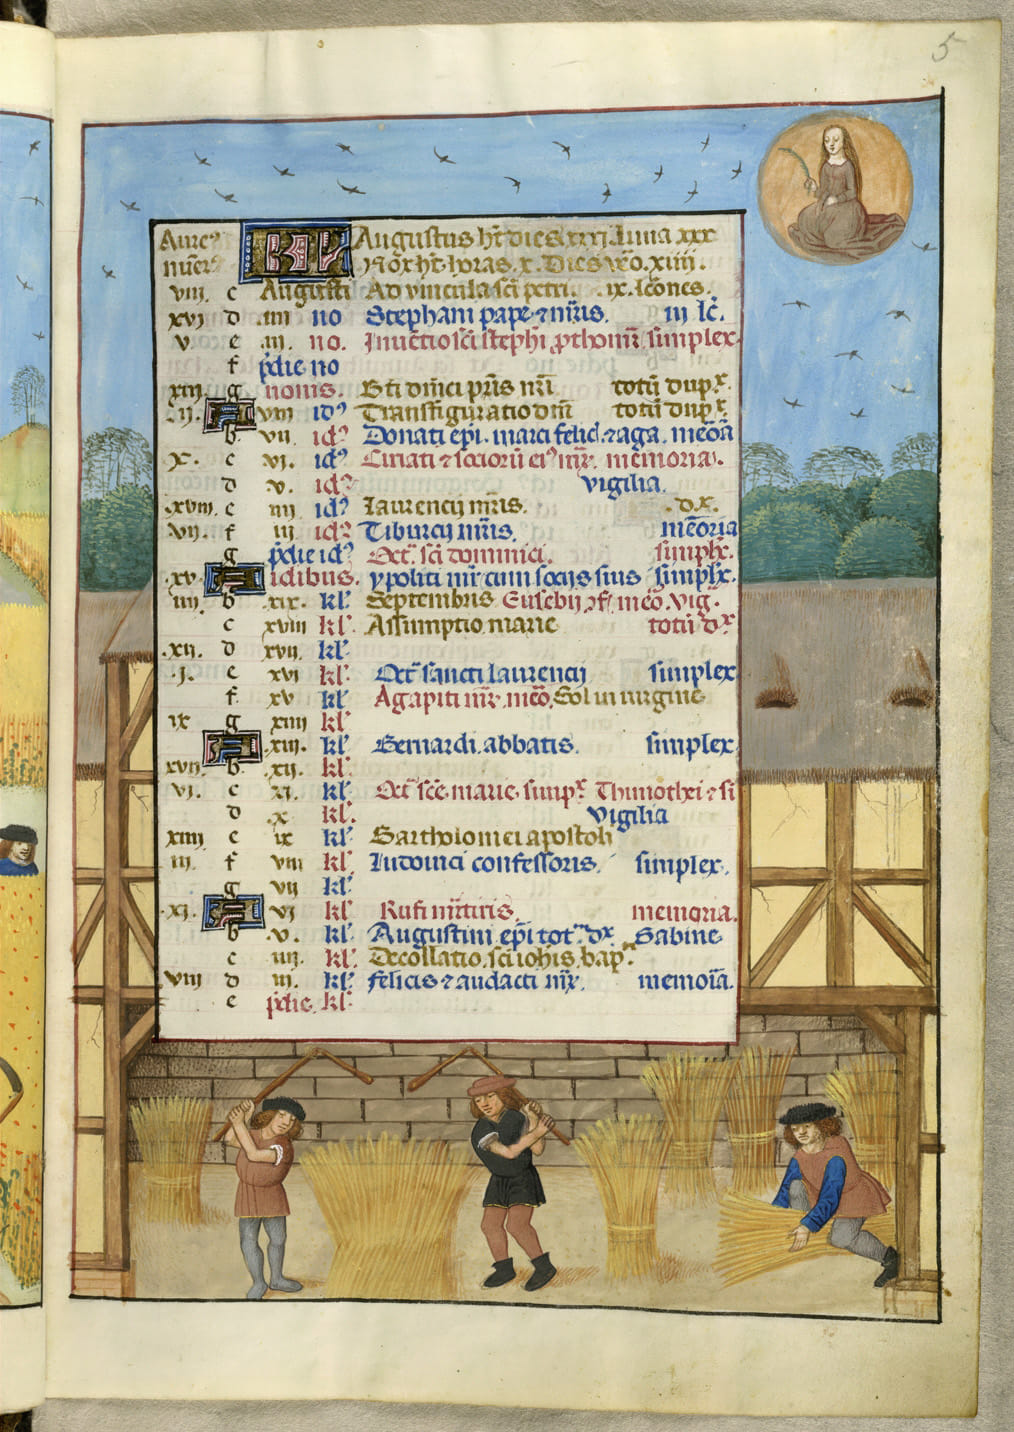 5
Aure⁹ KL Augustus ht dies xxxi. luna xxx
nūer⁹ Nox ht horas. x. Dies vo. xiiii.
viii. c Augusti Ad vincula sci petri. ix. lcones.
xvi d .iiii no Stephani pape ⁊ mris. iii lc.
v. e .iii. no. Inuentio sci stephi prothom simplex
f pdie no
xiii. g nonis. Bti dnici pris nri totu dupx.
.ii. A viii id⁹ Transfiguratio dni totu dupx.
b vii. id⁹ Donati epi. marci felicl. ⁊ aga. meoa
x. c vi. id⁹ Ciriati ⁊ socioru ei⁹ mr. memoria.
d v. id⁹ vigilia.
xviii. e iiii id⁹ Laurencij mris. dx.
vii. f iii id⁹ Tiburcij mris. meoria
g pdie id⁹ Oct. sci dominici. simplx.
xv. A idibus. ypoliti mr cum socijs suis simplx.
iiii b xix. kl. Septembris Eusebij cf. meo. vig.
c xviii kl. Assumptio marie totu dx
xii. d xvii. kl.
.i. e xvi kl. Oct sancti laurencij simplex
f xv kl. Agapiti mr. meo. Sol in uirgine
ix g xiiii kl.
A xiii. kl. Bernardi. abbatis. simplex
xvii b xii. kl.
vi. c xi. kl. Oct sce. marie. simpx. Thimothei ⁊ si
d x kl. vigilia
xiiii e ix kl. Bartholomei apostoli
iii. f viii kl. Ludouici confessoris. simplex.
g vii kl.
xi. A vi kl. Rufi mrtiris. memoria.
b v. kl. Augustini epi tot. dx Sabine
c iiii. kl. Decollatio. sci iohis. bap.
viii d iii. kl. felicis ⁊ audacti mx. memoia.
e pdie. kl.